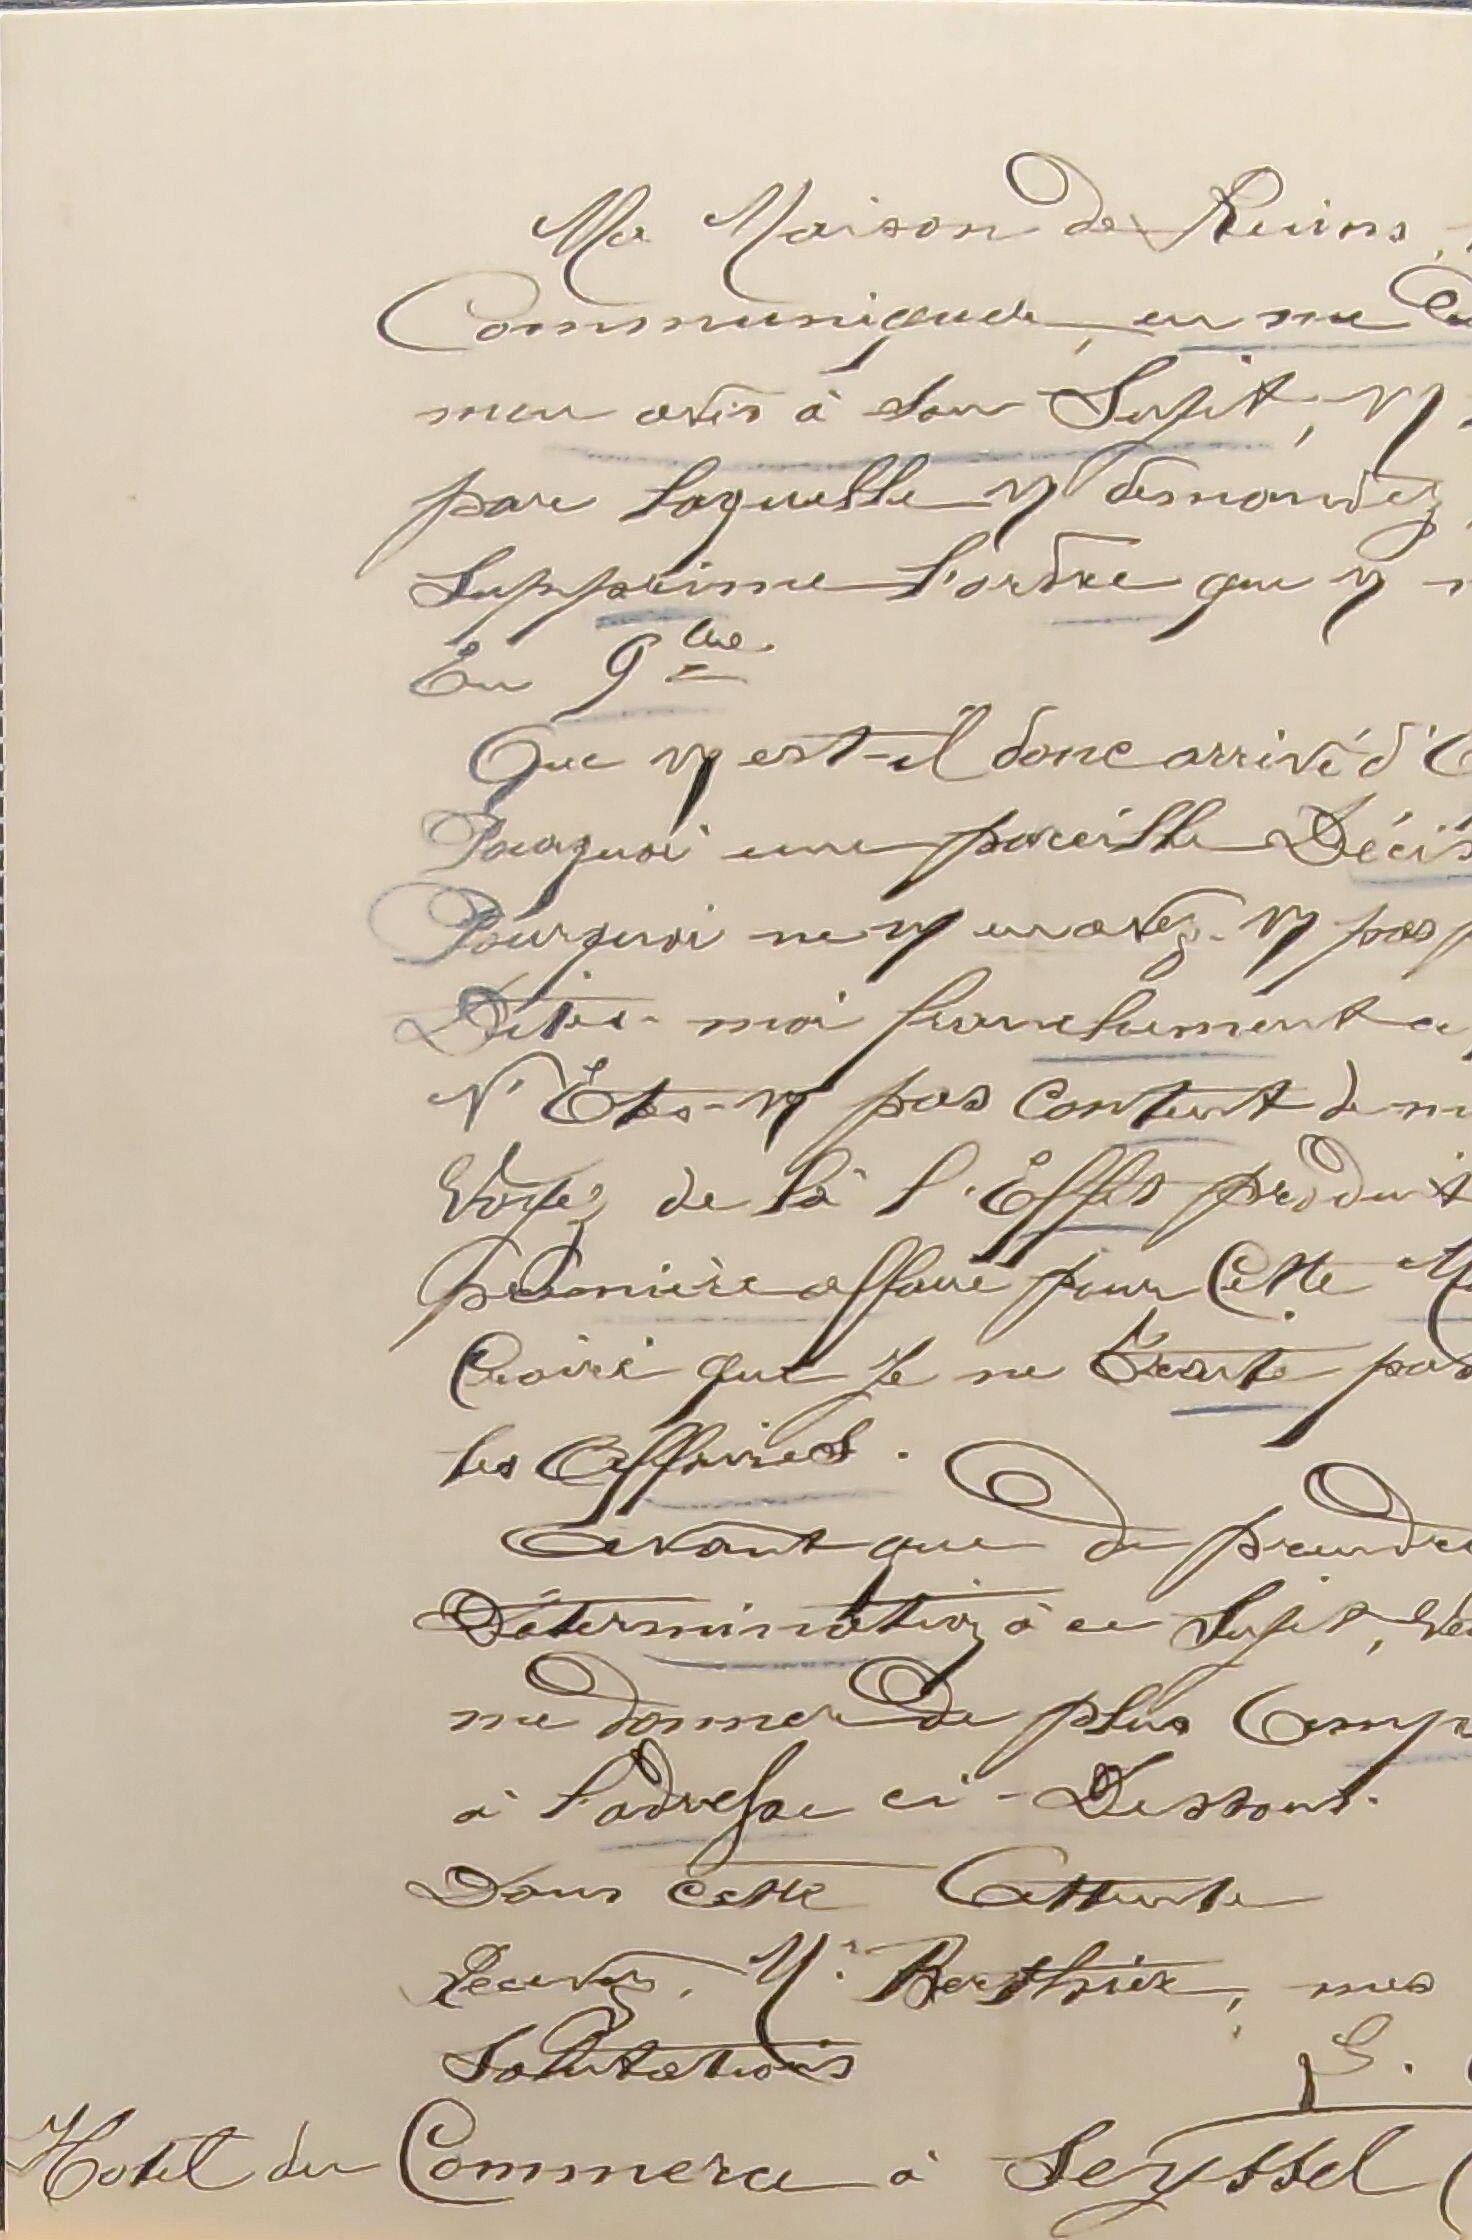 Ma Maison de Reims,
Communiquée, en me
mon avis à son Sujet, v/
par laquelle v/ demandez
Supprime l'ordre que v/
En 9bre
Que v/ est-il donc arrivé d'
Pourquoi une pareille Décis
Pourquoi ne v/ en avez-v/ pas
Dites-moi franchement ce
N'Êtes-v/ pas Content de
Voyez de là l'Effet produit
première affaire pour Cette
Croire que Je ne Traite pas
les Affaires.
Avant que de prendre
Détermination à ce Sujet,
me donner de plus Comp
à l'adresse ci-Dessous.
Dans cette Attente
Recevez, Mr. Berthier, mes
Salutations
Hotel du Commerce à Seyssel (